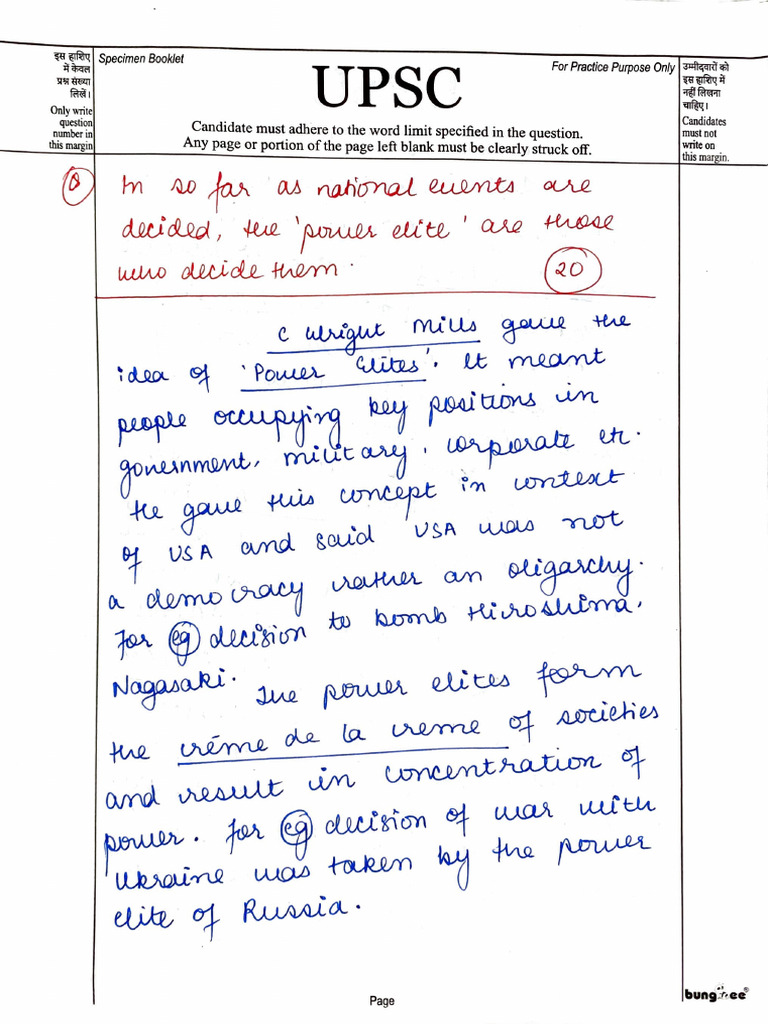 इस हाशिए
में केवल
प्रश्न संख्या
लिखें।
Only write
question
number in
this margin
Specimen Booklet
For Practice Purpose Only
UPSC
Candidate must adhere to the word limit specified in the question.
Any page or portion of the page left blank must be clearly struck off.
उम्मीदवारों को
इस हाशिए में
नहीं लिखना
चाहिए।
Candidates
must not
write on
this margin.
Q In so far as national events are
decided, the 'power elite' are those
who decide them. 20
C Wright Mills gave the
idea of 'Power Elites'. It meant
people occupying key positions in
government, military, corporate etc.
He gave this concept in context
of USA and said USA was not
a democracy rather an oligarchy.
For eg decision to bomb Hiroshima,
Nagasaki.
The power elites form
the créme de la creme of societies
and result in concentration of
power. For eg decision of war with
Ukraine was taken by the power
elite of Russia.
Page
bungree